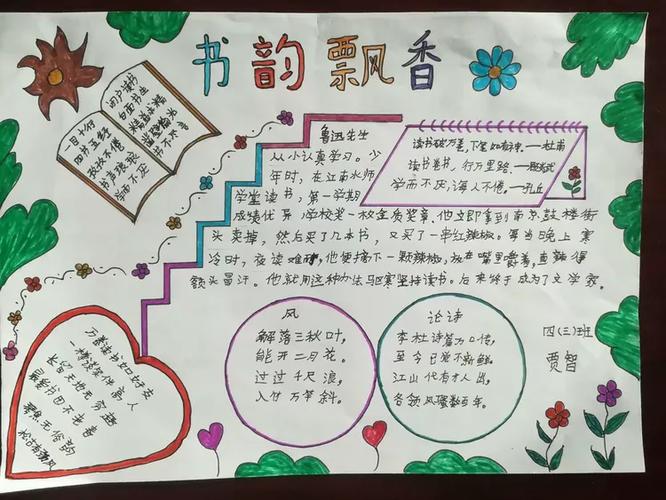 书韵飘香
一目十行
四书五经
孜孜不倦
书声琅琅
学而不厌
闭户读书
白面书生
精益求精
书不尽言
读书破万卷，下笔如有神。——杜甫
读书卷书，行万里路。
学而不厌，诲人不倦。——孔丘
鲁迅先生
从小认真学习。少
年时，在江南水师
学堂读书，第一学期
成绩优异，学校奖一枚金质奖章。他立即拿到南京鼓楼街
头卖掉，然后买了几本书，又买了一串红辣椒。每当晚上寒
冷时，夜读难耐，他便摘下一颗辣椒，放在嘴里嚼着，直辣得
额头冒汗。他就用这种办法驱寒坚持读书。后来终于成为了文学家。
万卷读书如好友
长留天地无穷趣
无俗韵
风
解落三秋叶，
能开二月花。
过过千尺浪，
入竹万竿斜。
论诗
李杜诗篇万口传，
至今已觉不新鲜。
江山代有才人出，
各领风骚数百年。
四（三）班
贾智